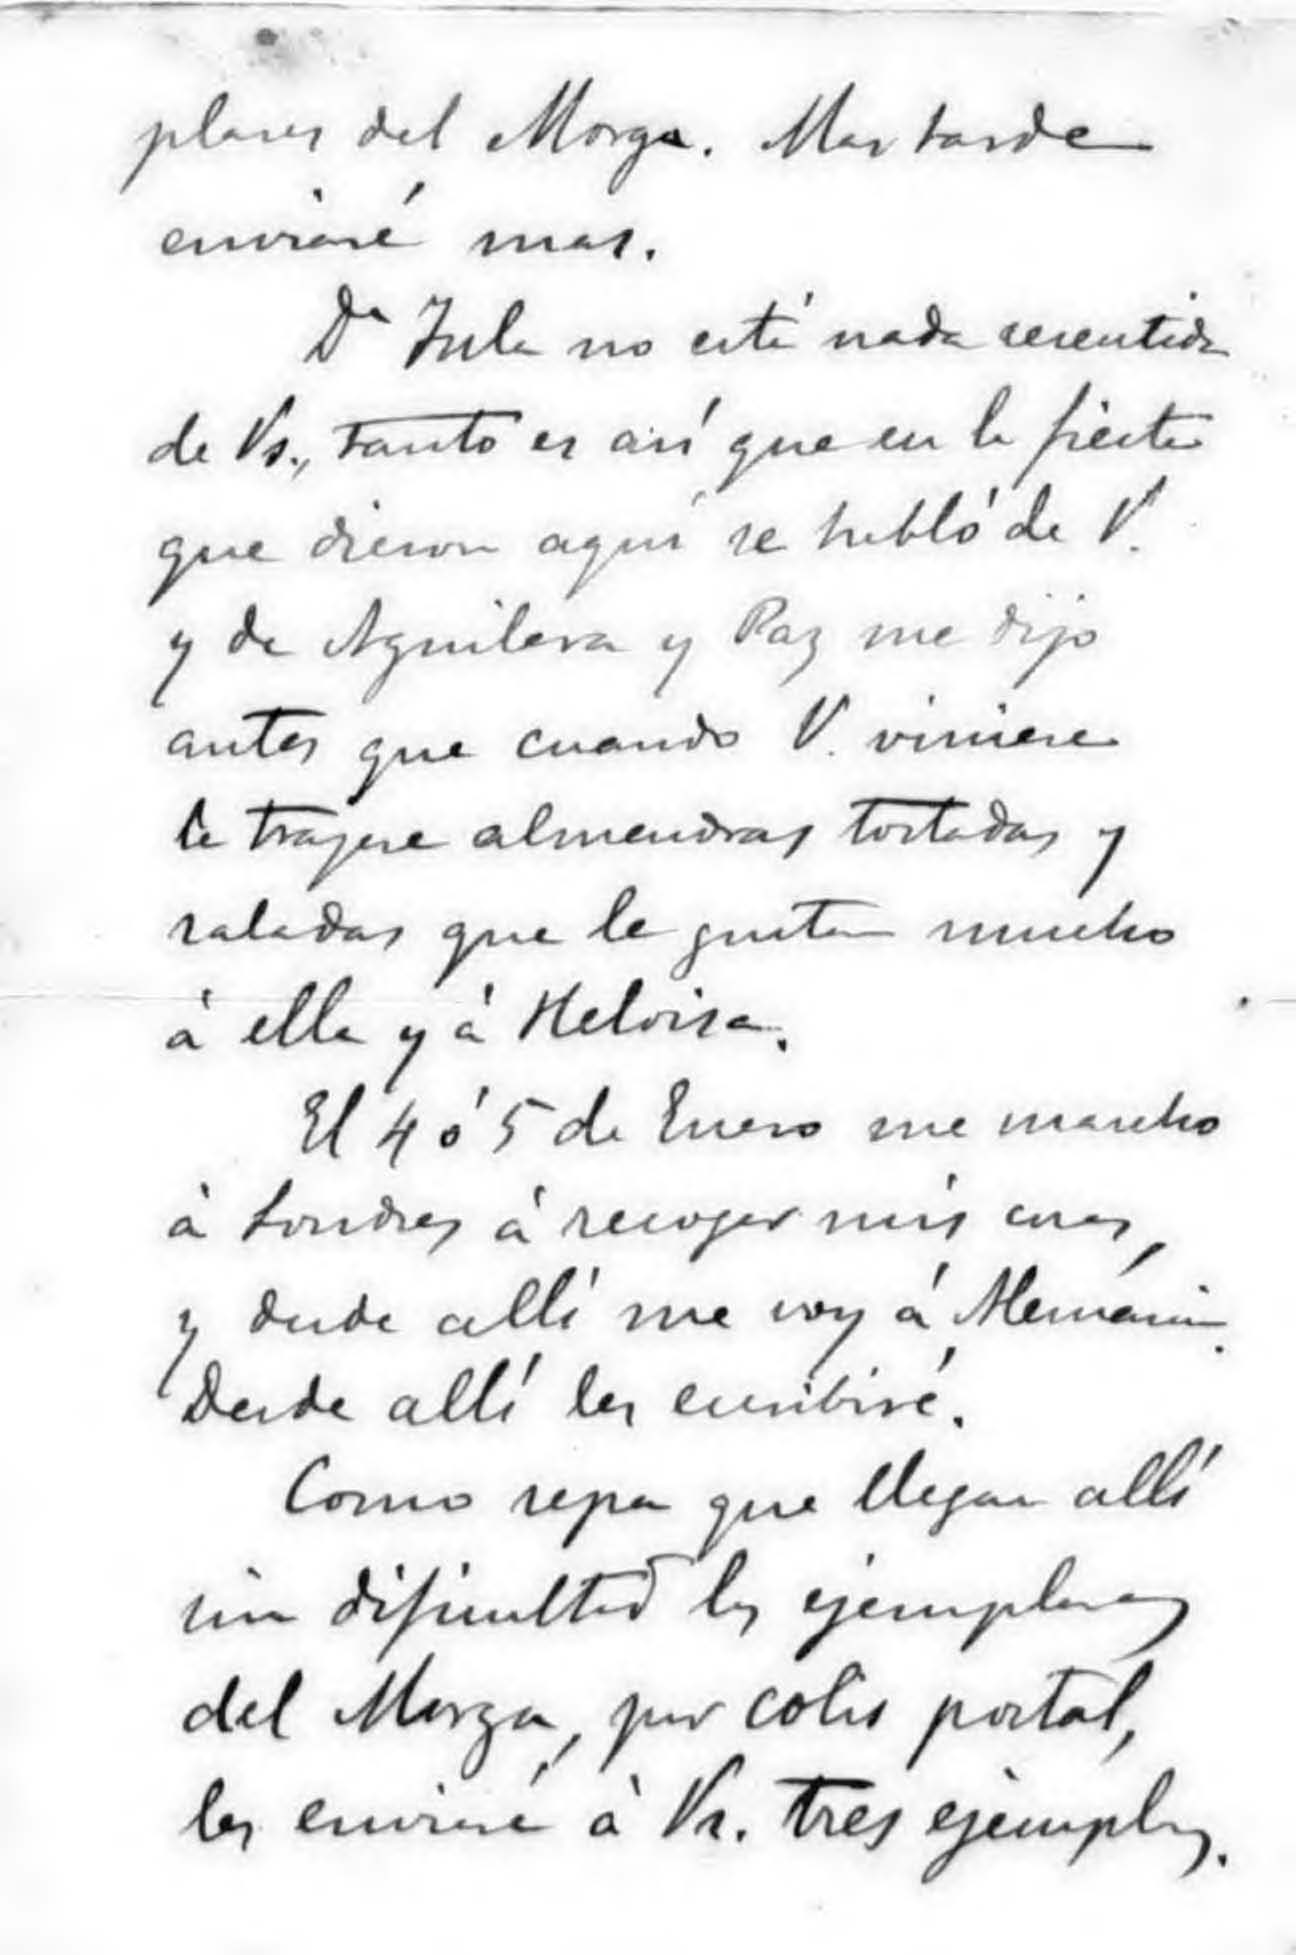 plares del Morga. Mas tarde
enviaré mas.
Dª Tula no está nada resentida
de Vs., tanto es asi que en la fiesta
que dieron aquí se habló de V.
y de Aguilera y Paz me dijo
antes que cuando V. viniese
le trajese almendras tostadas y
saladas que le gustan mucho
á ella y á Heloisa.
El 4 ó 5 de Enero me marcho
á Londres á recoger mis cosas,
y desde allí me voy á Alemania.
Desde allí les escribiré.
Como sepa que llegan allí
sin dificultad los ejemplares
del Morga, por colis postal,
les enviaré á Vs. tres ejemplares.